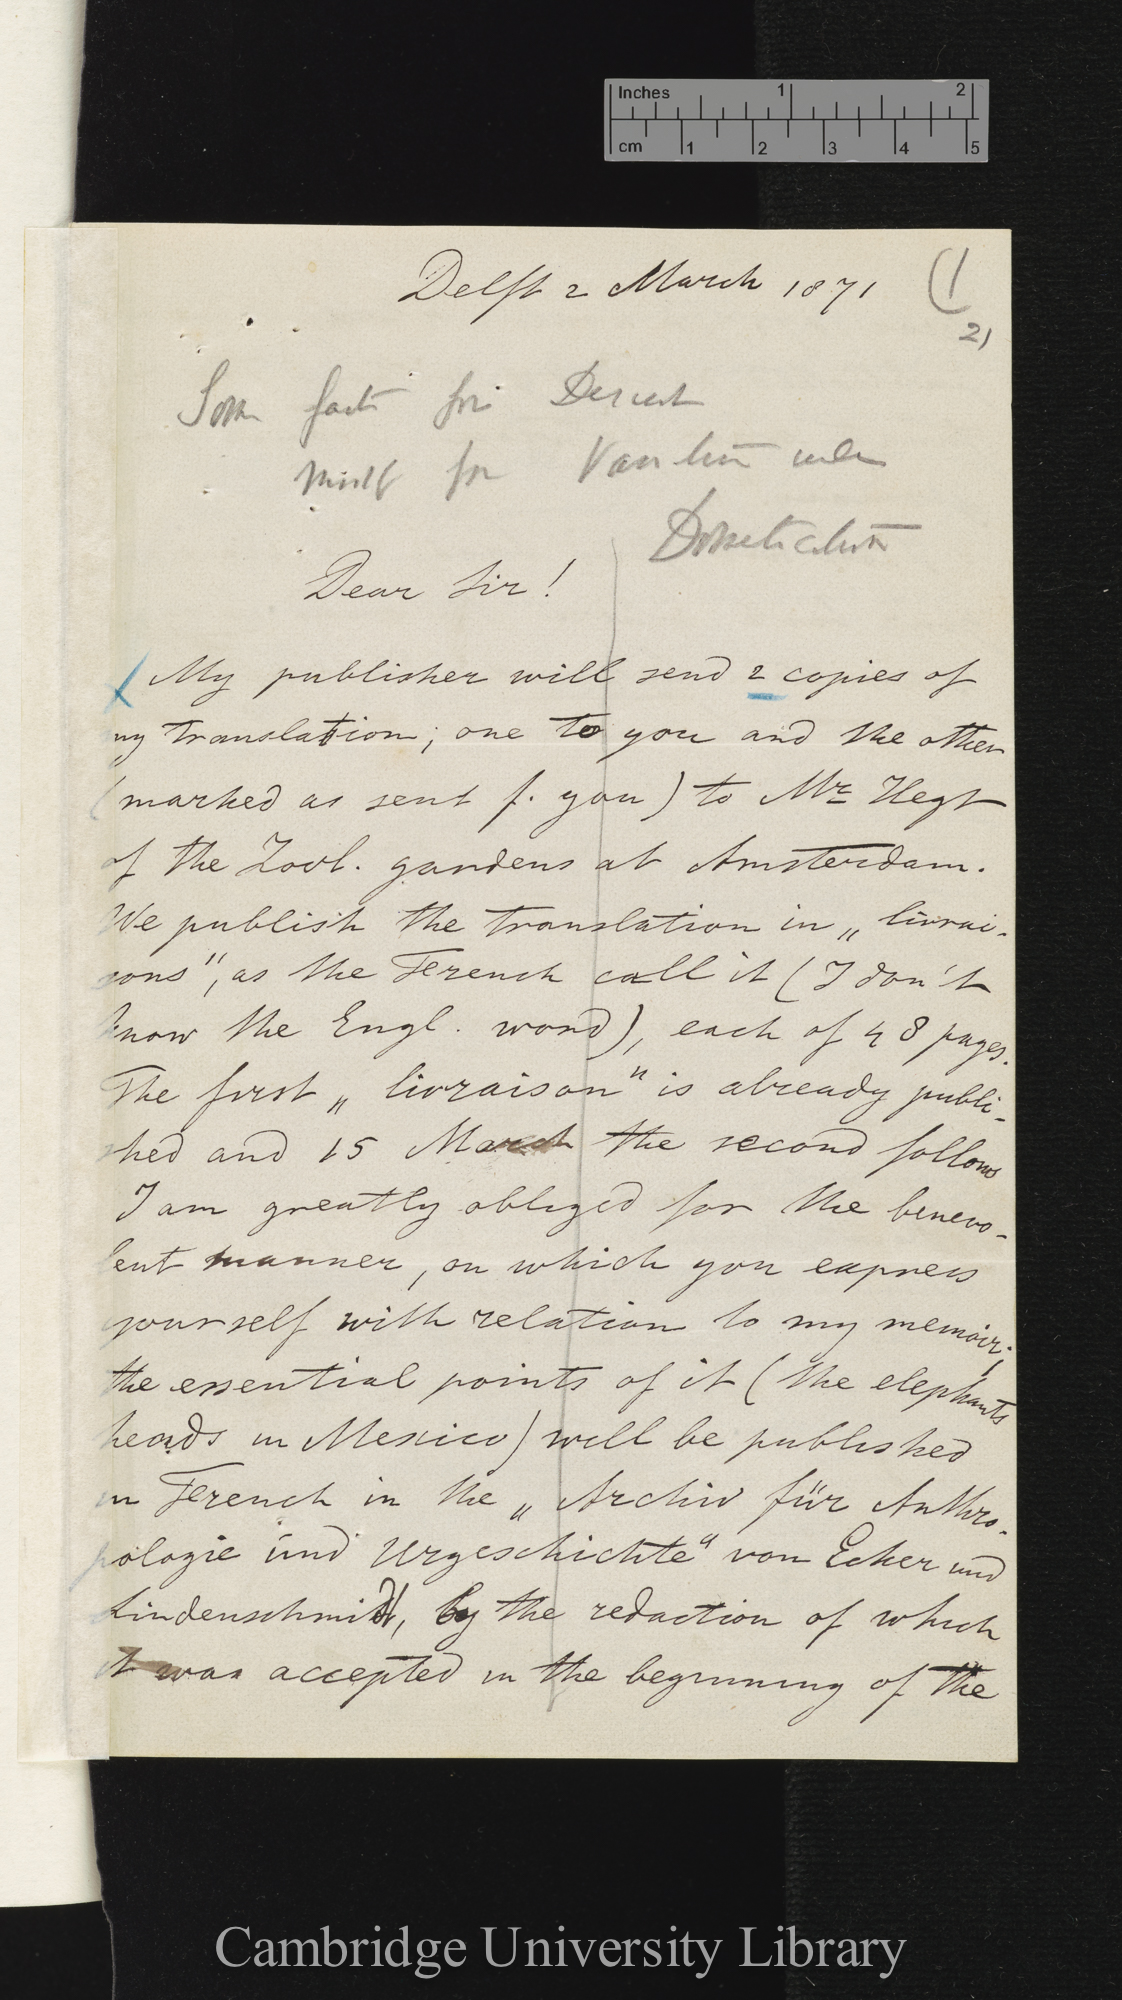 Inches 1 2
cm 1 2 3 4 5
Delft 2 March 1871
(1
21
Some facts for Descent
most for Variation under
Domestication
Dear Sir!
My publisher will send 2 copies of
my translation; one to you and the other
(marked as sent f. you) to Mr Hegt
of the Zool. gardens at Amsterdam.
We publish the translation in „livrai-
sons", as the French call it (I don't
know the Engl. word), each of 48 pages.
The first „livraison" is already publi-
shed and 15 March the second follows
I am greatly obliged for the benevo-
lent manner, on which you express
yourself with relation to my memoir;
the essential points of it (the elephants
heads in Mexico) will be published
in French in the „Archiv für Anthro-
pologie und Urgeschichte" von Ecker und
Lindenschmidt, by the redaction of which
it was accepted in the beginning of the
Cambridge University Library